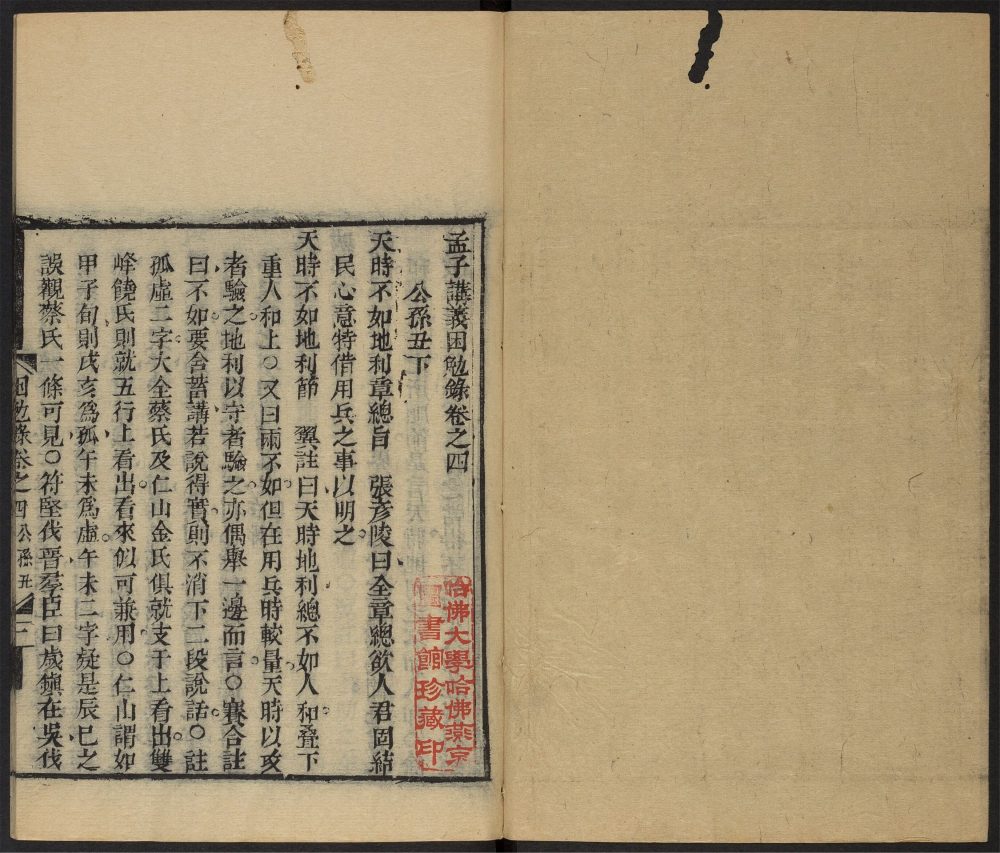 孟子講義困勉錄卷之四
公孫丑下
天時不如地利章總旨　張彥陵曰全章總欲人君固結
民心意特借用兵之事以明之
天時不如地利節　翼註曰天時地利總不如人和叠下
重人和上○又曰兩不如但在用兵時較量天時以攻
者驗之地利以守者驗之亦偶舉一邊而言○賽合註
曰不如要含蓄講若說得實則不消下二段說話○註
孤虛二字大全蔡氏及仁山金氏俱就支干上看出雙
峰饒氏則就五行上看出看來似可兼用○仁山謂如
甲子旬則戌亥爲孤午未爲虛午未二字疑是辰巳之
誤觀蔡氏一條可見○符堅伐晉羣臣曰歲鎮在吳伐
困勉錄卷之四公孫丑
一
哈佛大學哈佛燕京
圖書館珍藏印